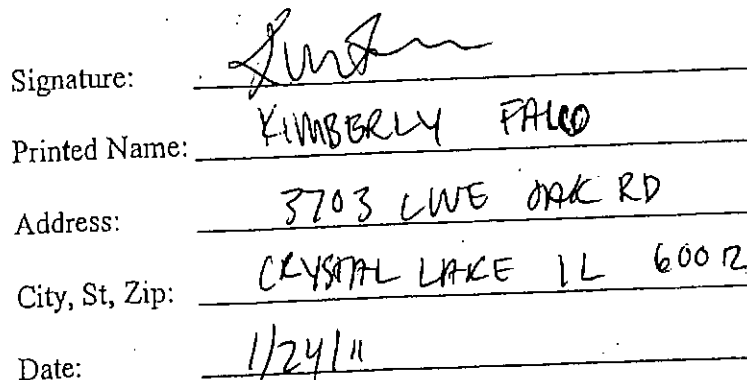 Signature:
Printed Name: KIMBERLY FALCO
Address: 3703 LIVE OAK RD
City, St, Zip: CRYSTAL LAKE IL 60012
Date: 1/24/11